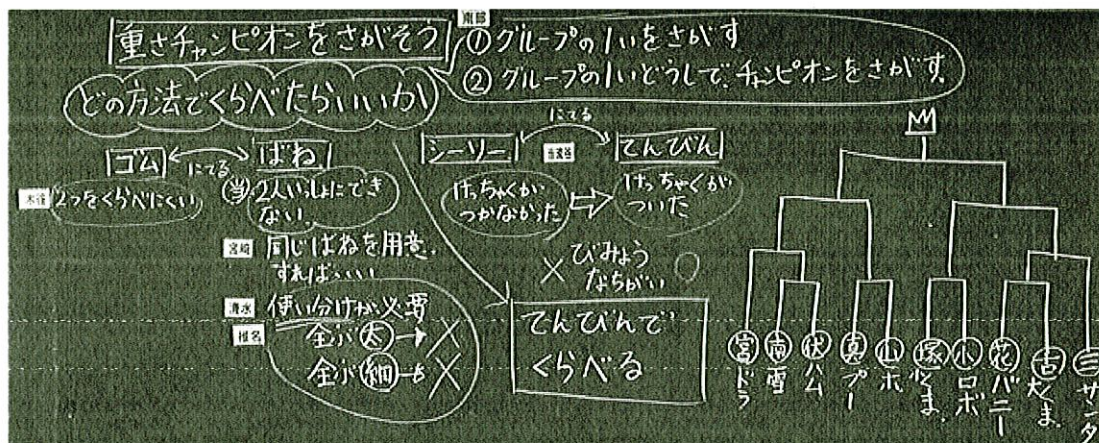 重さチャンピオンをさがそう
南部
①グループの1いをさがす
②グループの1いどうしで、チャンピオンをさがす。
どの方法でくらべたらいいか
ゴム
にてる
ばね
2つをくらべにくい
当 2人いっしょにでき
ない..
宮崎 同じばねを用意.
すれば…いい
清水 使い分けが必要
椎名 全ぶ太→×
全ぶ細→×
シーソー
にてる
てんびん
けっちゃくが
つかなかった
⇒
けっちゃくが
ついた
× びみょう
なちがい ○
てんびんで
くらべる
宮 ドラ
南 雪
伏 ハム
真 プー
山 ホ
塚
小 ロボ
花 バニー
古 大くま
三 サンタ